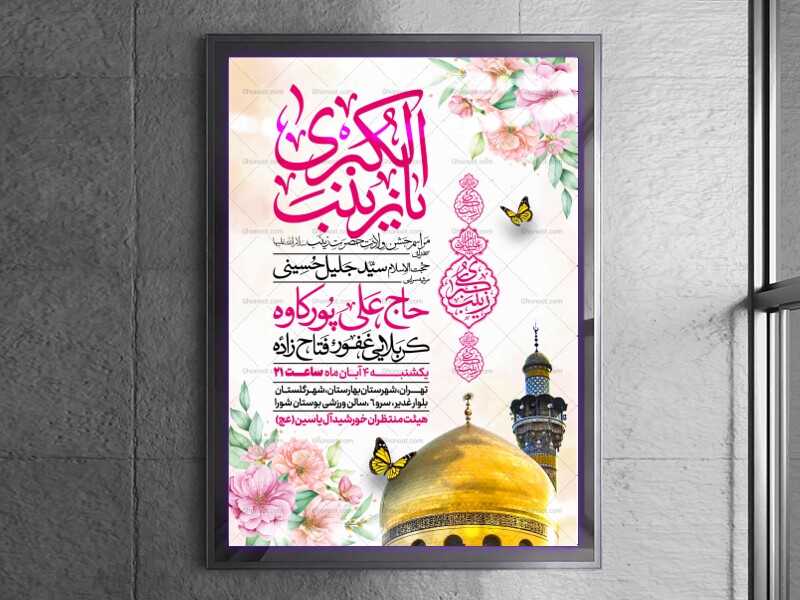 یا زینب الکبری
مراسم جشن ولادت حضرت زینب سلام الله علیها
سخنرانی
حجت الاسلام سید جلیل حسینی
مدیحه سرایی
حاج علی پورکاوه
کربلایی غفور فتاح زاده
یکشنبه ۴ آبان ماه ساعت ۲۱
تهران، شهرستان بهارستان، شهر گلستان
بلوار غدیر، سرو ۶، سالن ورزشی بوستان شورا
هیئت منتظران خورشید آل یاسین (عج)
زینب کبری
Ghonoot.com